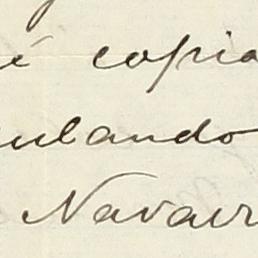 é copia
ulando
Navarr